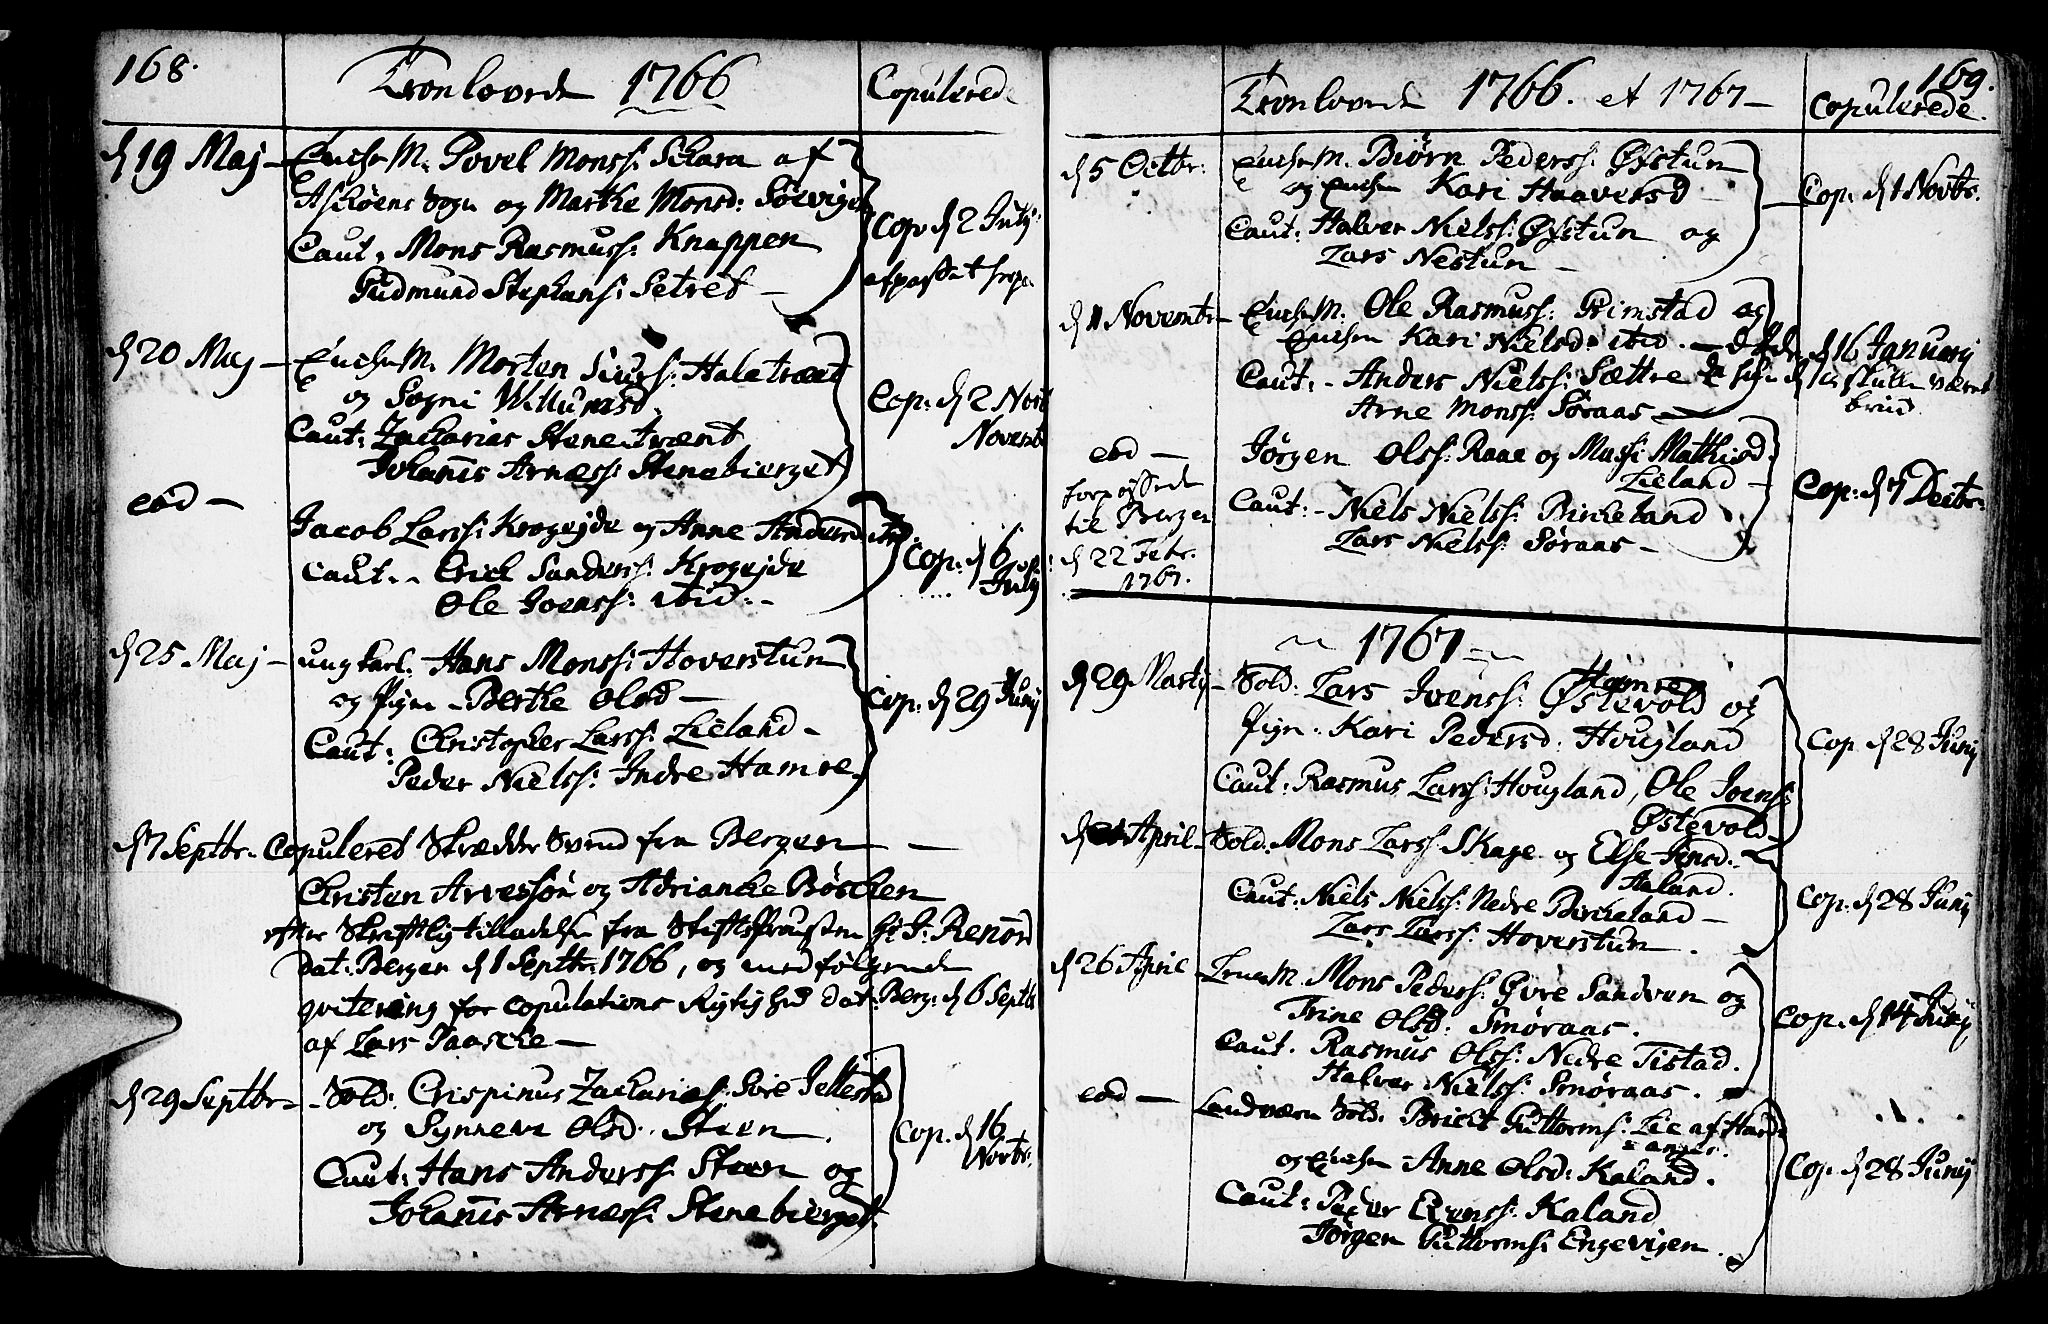 168.
Trovlovede 1766
Copulerede
d 19 Maj - Enchem. Povel Monss: Schara af
Aschöens Sogn og Marthe Monsd: Söevigen
Caut. Mons Rasmuss: Knappen
Gudmund Stephanss: Setret -
Cop d 2 July
afpasset
d 20 Maj - Enchem. Morten Siurs: Haletræet
og Sogni Willumsd.
Caut: Zacharias Stenetræet
Johannes Arness: Stenebierget
Cop: d 2 Nov
Novemb
eod -
Jacob Larss: Krogejde og Anne Andersd
Caut. - Erich Sanderss: Krogejde
Ole Joenss: ibid: -
Cop: d 6
July
d 25 Maj - ungkarl. Hans Monss: Hoverstun
og Pigen - Berthe Olsd -
Caut: Christopher Larss: Lieland -
Peder Nielss: Indre Hamre
Cop: d 29 Junij
d 7 Septbr. Copuleret Skrædder Svend fra Bergen -
Christen Arvessön og Adrianche Böschen
efter Skriftlig tilladelse fra StiftsProusten Hr J: Renord
dat: Bergen d 1 Septbr. 1766, og medfölgende
qvitering for Copulations Rigtighed dat: Berg: d 6 Septb
af Lars Paasche -
d 29 Septbr - Sold: Crispinus Zachariæs: Söre Tellestad
og Synneve Olsd. Steen.
Caut: Hans Anderss: Steen og
Johannes Arness: Stenebierget.
Cop. d 16
Novbr.
169.
Trovlovede 1766. et 1767 -
Copulerede.
d 5 Octbr. Enchem. Biörn Pederss: Öfstun
og Enchen Kari Haaversd -
Caut: Halver Nielss: Öfstun og
Lars Nestun -
Cop: d 1 Novbr.
d 11 Novembr - Enchem. Ole Rasmuss: Rimstad og
Enchen Kari Nielsd: ibid. -
Caut: - Anders Nielss: Sættre
Arne Monss: Söraas -
d 16 January
skulle været
brud
eod -
Jörgen Olss: Raae og Mussi Mathisd.
Lieland -
Caut: - Niels Nielss: Bircheland
Lars Nielss: Söraas -
Cop: d 7 Decbr.
til Bergen
d 22 Febr.
1767.
1767
d 29 Martij - Sold: Lars Ivenss: Östevold og
Hamre
Pign. Kari Pedersd: Hougland
Caut: Rasmus Larss: Hougland, Ole Joenss:
Östevold -
Cop. d 28 Junij
April - Sold: Mons Larss: Skage og Else Jensd:
Aaland.
Caut: Niels Nielss: Nedre Bircheland -
Lars Larss: Hoverstun.
Cop: d 28 Junij
d 26 April - Enchem. Mons Pederss: Övre Sandven og
Trine Olsd: Smöraas.
Caut. Rasmus Olss: Nedre Tistad.
Halver Nielss: Smöraas.
Cop. d 14 July
eod - Landværn Sold: Bricit Guttorms: Lie af Hard
anger.
og Enchen Anne Olsd: Kaland.
Caut: Peder Evenss: Kaland
Jörgen Guttorms: Engevigen.
Cop. d 28 Junij